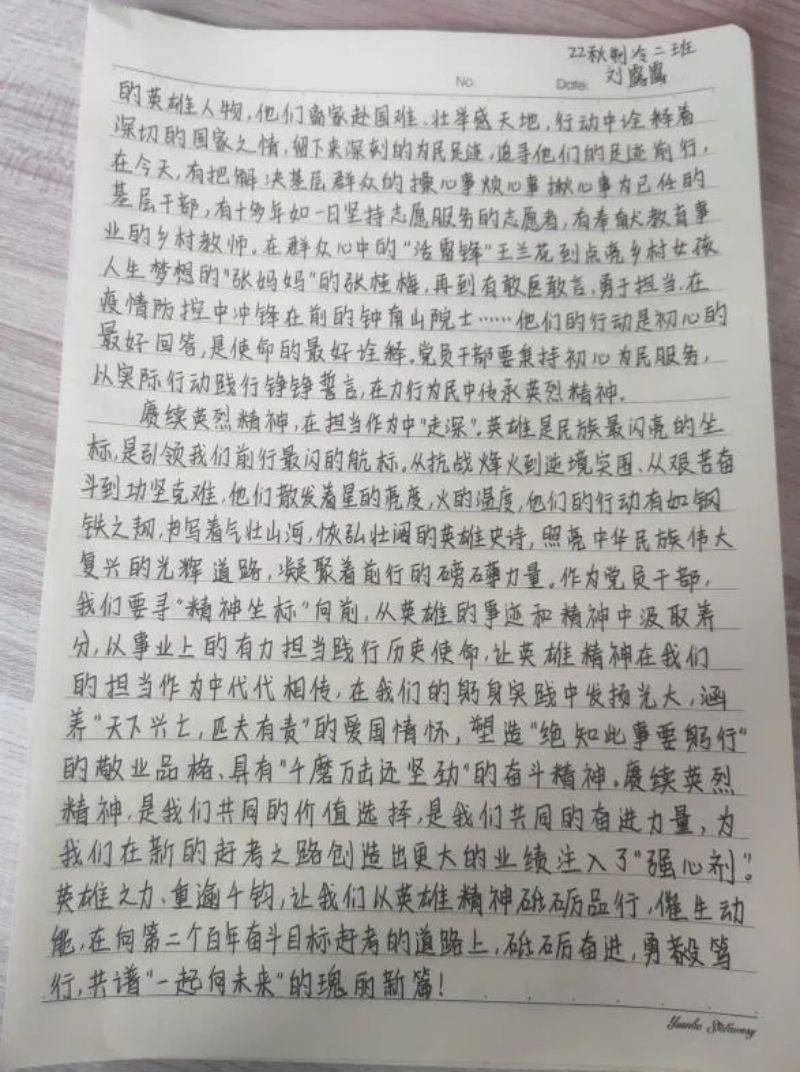 22秋制冷二班
刘露露
No.
Date:
的英雄人物,他们离家赴国难、壮举感天地,行动中诠释着
深切的国家之情,留下来深刻的为民足迹,追寻他们的足迹前行,
在今天,有把解决基层群众的操心事烦心事揪心事为已任的
基层干部,有十多年如一日坚持志愿服务的志愿者,有奉献教育事
业的乡村教师。在群众心中的“活雷锋”王兰花到点亮乡村女孩
人生梦想的“张妈妈”的张桂梅,再到有敢医敢言、勇于担当、在
疫情防控中冲锋在前的钟南山院士……他们的行动是初心的
最好回答,是使命的最好诠释。党员干部要秉持初心为民服务,
以实际行动践行铮铮誓言,在力行为民中传承英烈精神。
赓续英烈精神,在担当作为中“走深”。英雄是民族最闪亮的坐
标,是引领我们前行最闪的航标。从抗战烽火到逆境突围、从艰苦奋
斗到功坚克难,他们散发着星的亮度,火的温度,他们的行动有如钢
铁之韧,书写着气壮山河,恢弘壮阔的英雄史诗,照亮中华民族伟大
复兴的光辉道路,凝聚着前行的磅礴力量。作为党员干部,
我们要寻“精神坐标”向前,从英雄的事迹和精神中汲取养
分,以事业上的有力担当践行历史使命,让英雄精神在我们
的担当作为中代代相传,在我们的躬身实践中发扬光大,涵
养“天下兴亡,匹夫有责”的爱国情怀,塑造“绝知此事要躬行”
的敬业品格、具有“千磨万击还坚劲”的奋斗精神。赓续英烈
精神,是我们共同的价值选择,是我们共同的奋进力量,为
我们在新的赶考之路创造出更大的业绩注入了“强心剂”。
英雄之力、重逾千钧,让我们以英雄精神砥砺品行,催生动
能,在向第二个百年奋斗目标赶考的道路上,砥砺奋进,勇毅笃
行,共谱“一起向未来”的瑰丽新篇!
Stationery